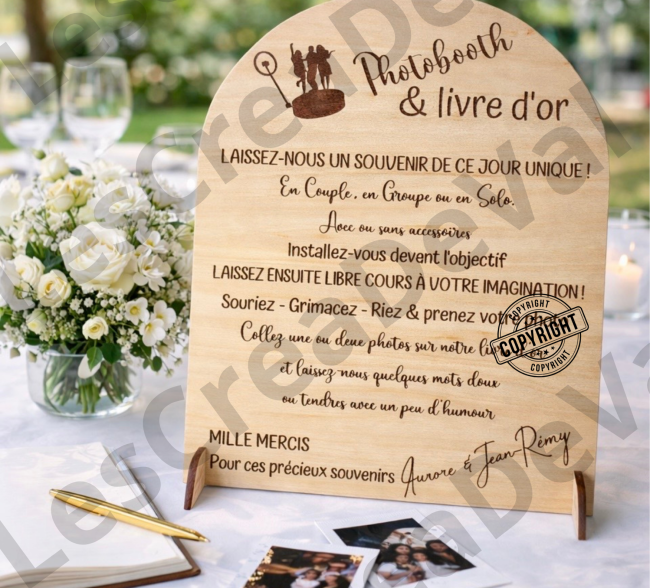 Photobooth
& livre d'or
LAISSEZ-NOUS UN SOUVENIR DE CE JOUR UNIQUE !
En Couple, en Groupe ou en Solo.
Avec ou sans accessoires
Installez-vous devent l'objectif
LAISSEZ ENSUITE LIBRE COURS À VOTRE IMAGINATION !
Souriez - Grimacez - Riez & prenez votre
Collez une ou deue photos sur notre
et laissez-nous quelques mots doux
ou tendres avec un peu d'humour
MILLE MERCIS
Pour ces précieux souvenirs Aurore & Jean-Rémy
COPYRIGHT
COPYRIGHT
COPYRIGHT
LesCreaDeVal